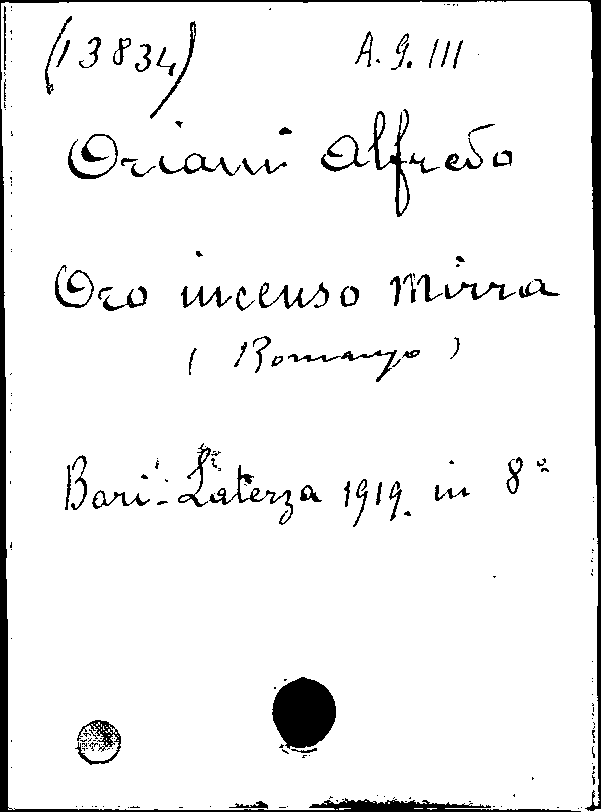 (13834) A. G. III
Oriani Alfredo
Oro incenso Mirra
( Romanzo )
Bari - Laterza 1919. in 8°